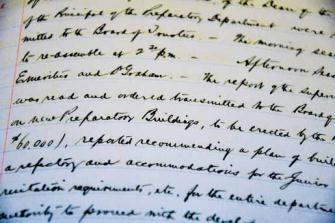 of the Dean of
of the Principal of the Preparatory Department were
mitted to the Board of Trustees. — The morning se
to re-assemble at 2 30 p.m. — Afternoon
Emeritus and Graham. — The report of the Super
was read and ordered transmitted to the Board of
on new Preparatory Buildings, to be erected by the
$60,000), reported recommending a plan of buil
a refectory and accommodations for the Junior
recitation requirements, etc. for the entire depart
to proceed with the